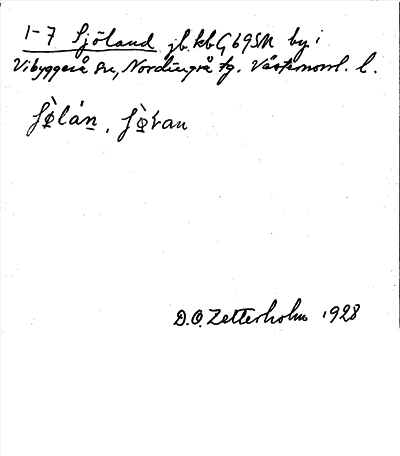 1-7 Sjöland jb kbG69SN by i
Vibyggerå sn, Nordingrå tg. Västernorrl. l.
D.O. Zetterholm 1928